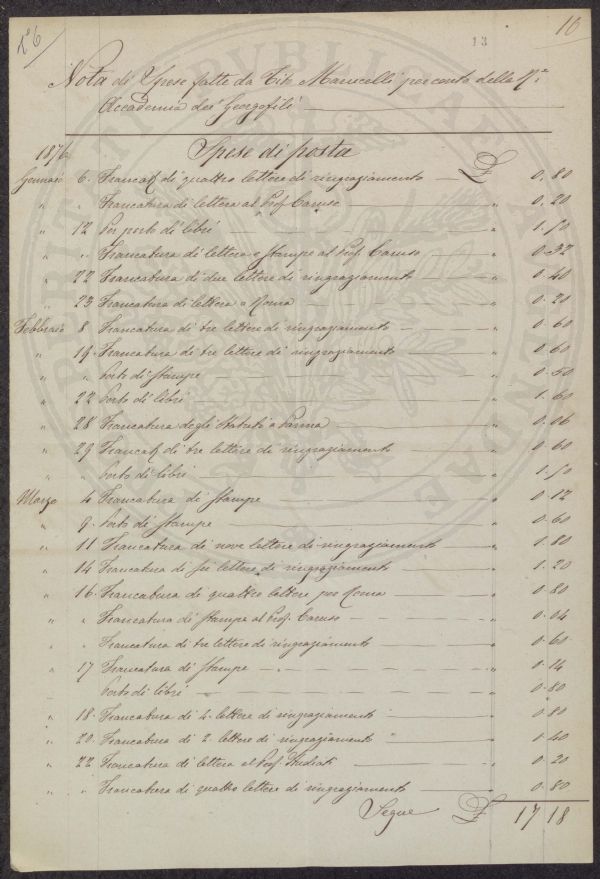 N° 6
13
10
Nota di Spese fatte da Tito Marucelli per conto della Rª
Accademia dei Georgofili
1876 Spese di posta
Gennaio 6. Francatª di quattro lettere di ringraziamento — £ 0.80
" . Francatura di lettera al Prof. Caruso — " 0.20
" 12 Per porto di libri — " 1.50
" " Francatura di lettera e stampe al Prof. Caruso — " 0.32
" 22 Francatura di due lettere di ringraziamento — " 0.40
" 23 Francatura di lettera a Roma — " 0.20
Febbraio 8 Francatura di tre lettere di ringraziamento — " 0.60
" 19. Francatura di tre lettere di ringraziamento — " 0.60
" " Porto di stampe — " 0.60
" 22 Porto di libri — " 1.60
" 28 Francatura degli Statuti a Parma — " 0.06
" 29 Francatª di tre lettere di ringraziamento — " 0.60
" " Porto di libri — " 1.50
Marzo 4 Francatura di stampe — " 0.12
" 9. Porto di stampe — " 0.60
" 11 Francatura di nove lettere di ringraziamento — " 1.80
" 14 Francatura di sei lettere di ringraziamento — " 1.20
" 16. Francatura di quattro lettere per Roma — " 0.80
" " Francatura di stampe al Prof. Caruso — " 0.04
" " Francatura di tre lettere di ringraziamento — " 0.60
" 17 Francatura di stampe — " 0.14
Porto di libri — " 0.80
" 18. Francatura di 4 lettere di ringraziamenti — " 0.80
" 20. Francatura di 2 lettere di ringraziamenti " — " 0.40
" 22 Francatura di lettera al Prof. — " 0.20
" " Francatura di quattro lettere di ringraziamento — " 0.80
Segue £ 17 18